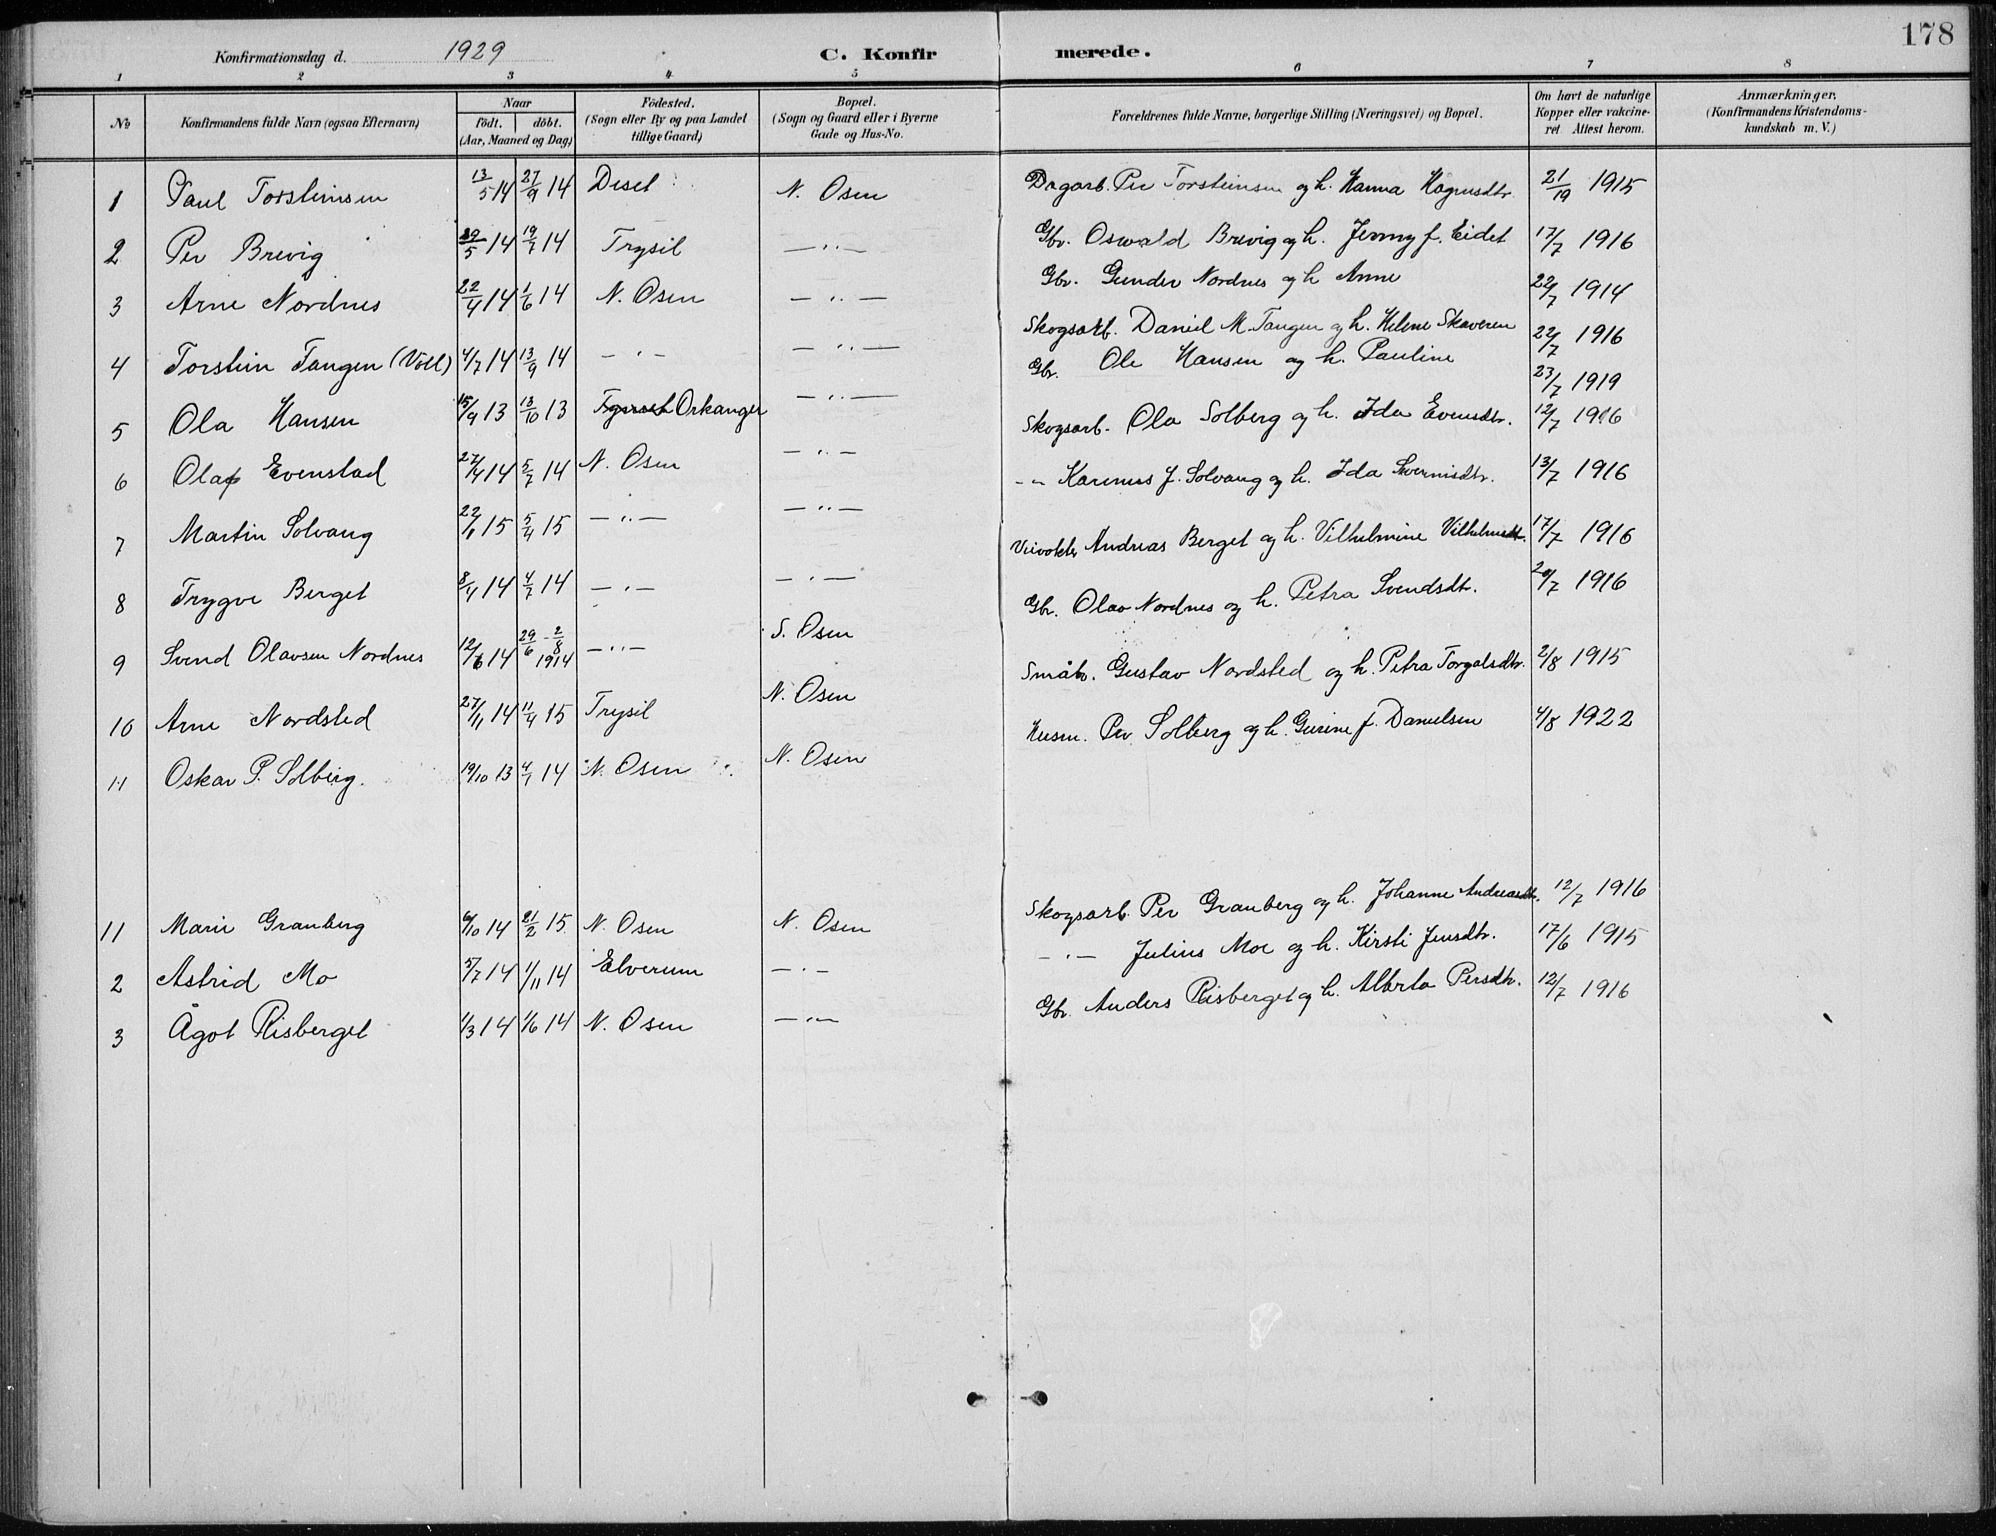 178
Konfirmationsdag d. 1929 C. Konfir merede.
1 2 3 4 5 6 7 8
№ Konfirmandens fulde Navn (ogsaa Efternavn) Naar födt. döbt. (Aar, Maaned og Dag) Födested. (Sogn eller By og paa Landet tillige Gaard) Bopæl. (Sogn og Gaard eller i Byerne Gade og Hus-No. Forældrenes fulde Navne, borgerlige Stilling (Næringsvei) og Bopæl. Om havt de naturlige Kopper eller vakcineret Attest herom. Anmærkninger. (Konfirmandens Kristendomskundskab m. V.)
1 Paul Torsteinsen 13/5 14 27/9 14 Deset N. Osen Dagarb. Per Torsteinsen og h. Hanna Hagnusdtr. 21/19 1915
2 Per Brevig 29/5 14 19/7 14 Trysil —"— Gbr. Oswald Brevig og h. Jenny f. Eidet 17/7 1916
3 Arne Nordnes 22/4 14 1/6 14 N. Osen —"— Gbr. Gunder Nordnes og h Anne 22/7 1914
4 Torstein Tangen (Voll) 4/7 14 13/9 14 —"— —"— Skogsarb. Daniel M. Tangen og h. Helene Skaveren 22/7 1916
5 Ola Hansen 15/9 13 13/10 13 Orkanger —"— Gbr. Ole Hansen og h. Pauline 23/7 1919
6 Olaf Evenstad 27/4 14 5/7 14 N. Osen —"— Skogsarb. Ola Solberg og h. Ida Evensdtr. 12/7 1916
7 Martin Solvang 22/1 15 5/4 15 —"— —"— —"— Karenus J. Solvang og h. Ida 13/7 1916
8 Trygve Berget 8/4 14 4/7 14 —"— —"— Veivokter Andreas Berget og h. Vilhelmine Vilhelmsdtr. 17/7 1916
9 Svend Olavsen Nordnes 12/6 14 29/6 - 2/8 1914 —"— S. Osen Gbr. Olav Nordnes og h. Petra Svendsdtr. 20/7 1916
10 Arne Nordsted 27/11 14 11/4 15 Trysil N. Osen Småbr. Gustav Nordsted og h. Petra Torgalsdtr. 2/8 1915
11 Oskar P. Solberg. 19/10 13 4/1 14 N. Osen N. Osen Husm. Per Solberg og h. Gurine f. Danielsen 4/8 1922
11 Marie Granberg 6/10 14 21/2 15 N. Osen N. Osen Skogsarb. Per Granberg og h. Johanne Andreasdtr. 12/7 1916
2 Astrid Mo 5/7 14 1/11 14 Elverum —"— —"— Julius Moe og h. Kirsti Jensdtr. 17/6 1915
3 Ågot Risberget 1/3 14 1/6 14 N. Osen —"— Gbr. Anders Risberget og h. Alberta Persdtr. 12/7 1916